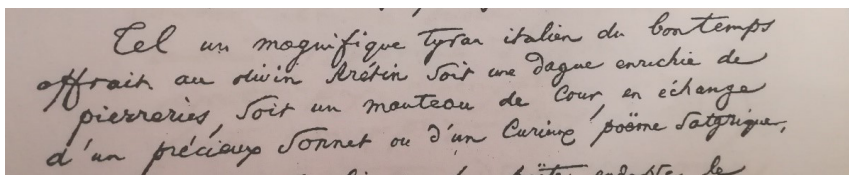 Tel un magnifique Tyran italien du bon temps
offrait au divin Arétin soit une dague enrichie de
pierreries, soit un manteau de cour, en échange
d'un précieux sonnet ou d'un curieux poëme satyrique,
le